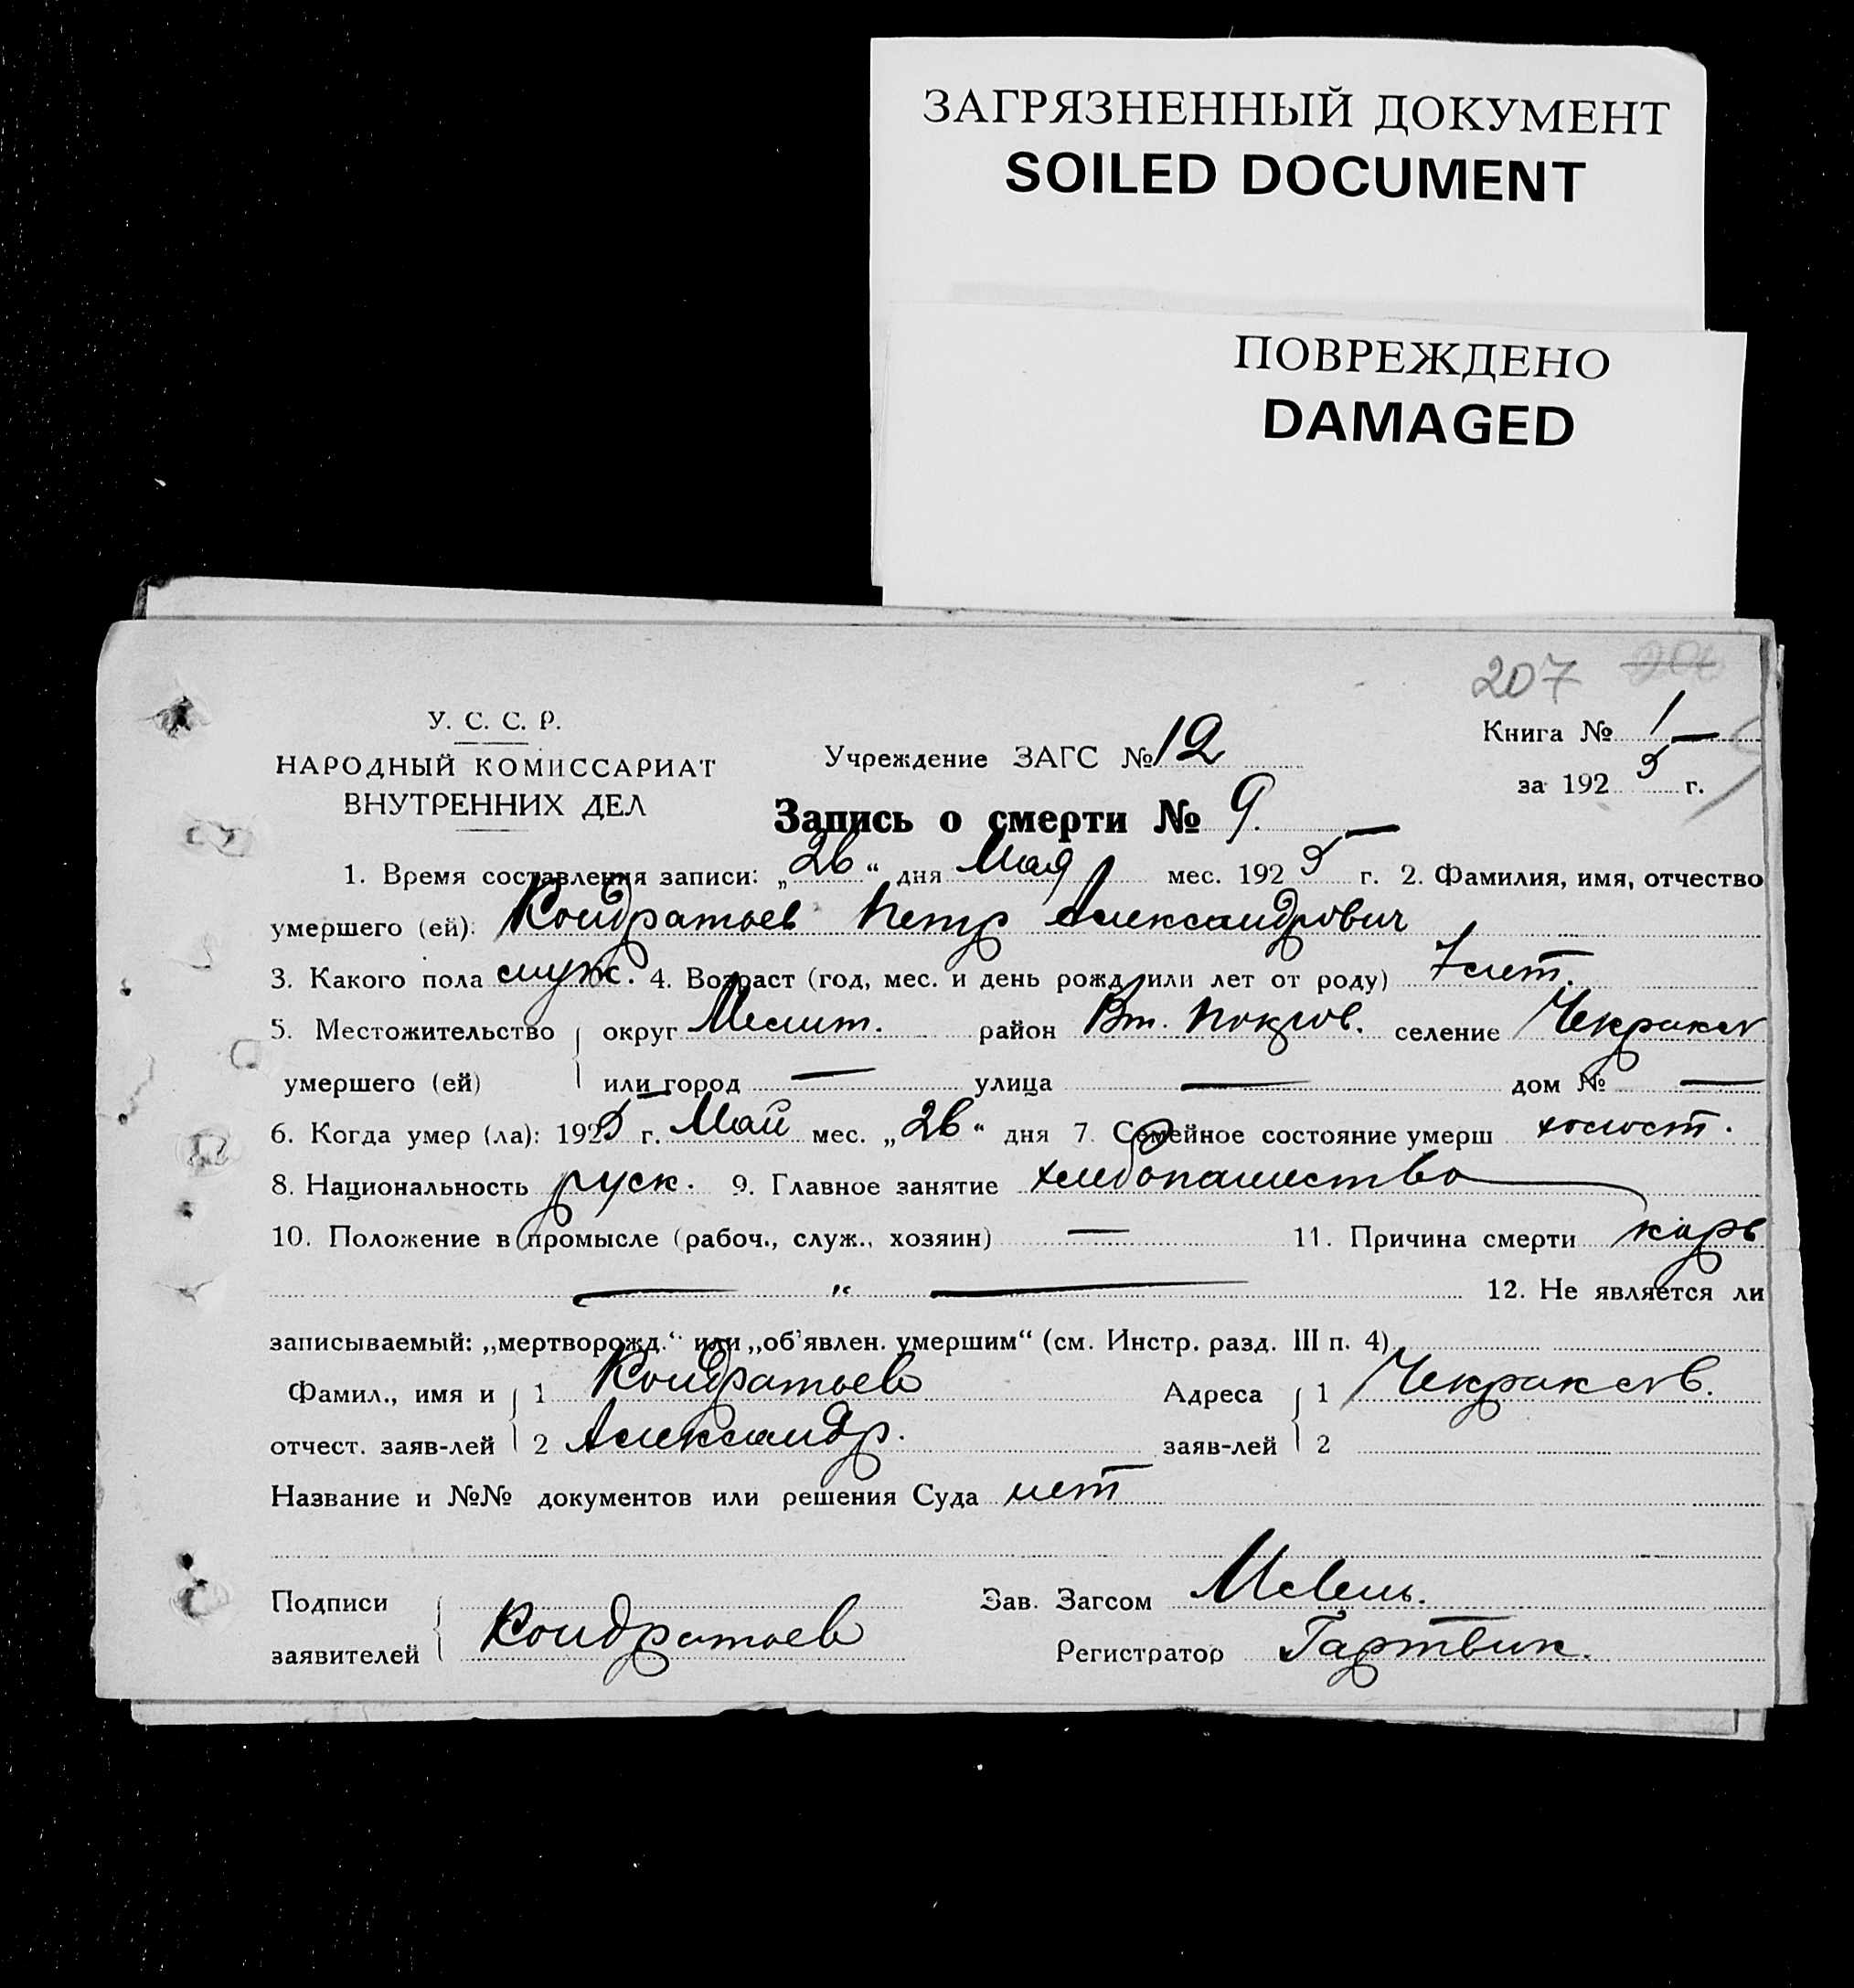 ЗАГРЯЗНЕННЫЙ ДОКУМЕНТ
SOILED DOCUMENT
ПОВРЕЖДЕНО
DAMAGED
207
У. С. С. Р.
НАРОДНЫЙ КОМИССАРИАТ
ВНУТРЕННИХ ДЕЛ
Учреждение ЗАГС № 12
Книга № 1
за 1925 г.
Запись о смерти № 9.
1. Время составления записи: „26“ дня Мая мес. 1925 г. 2. Фамилия, имя, отчество
умершего (ей): Кондратьев Петр Александрович
3. Какого пола муж. 4. Возраст (год, мес. и день рожд. или лет от роду) 7 лет.
5. Местожительство округ Мелит. район Вт. Покров. селение Чекракст
умершего (ей) или город — улица — дом № —
6. Когда умер (ла): 1925 г. Май мес. „26“ дня 7. Семейное состояние умерш холост.
8. Национальность руск. 9. Главное занятие хлебопашество
10. Положение в промысле (рабоч., служ., хозяин) — 11. Причина смерти корь
— " — 12. Не является ли
записываемый: „мертворожд.“ или „об’явлен. умершим“ (см. Инстр. разд. III п. 4)
Фамил., имя и 1 Кондратьев Адреса 1
отчест. заяв-лей 2 Александр. заяв-лей 2
Название и №№ документов или решения Суда нет
Подписи Зав. Загсом
заявителей Кондратьев Регистратор Гартвик.